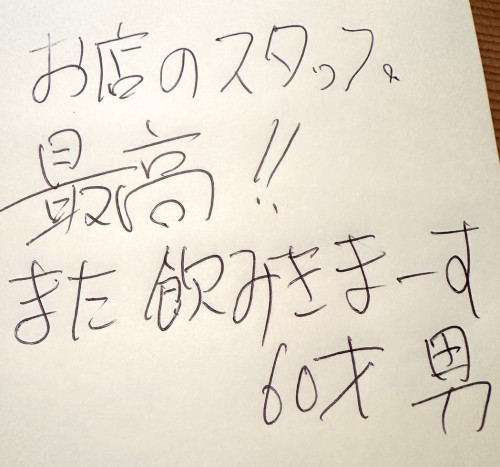 お店のスタッフ、
最高!!
また飲みきまーす
60才 男